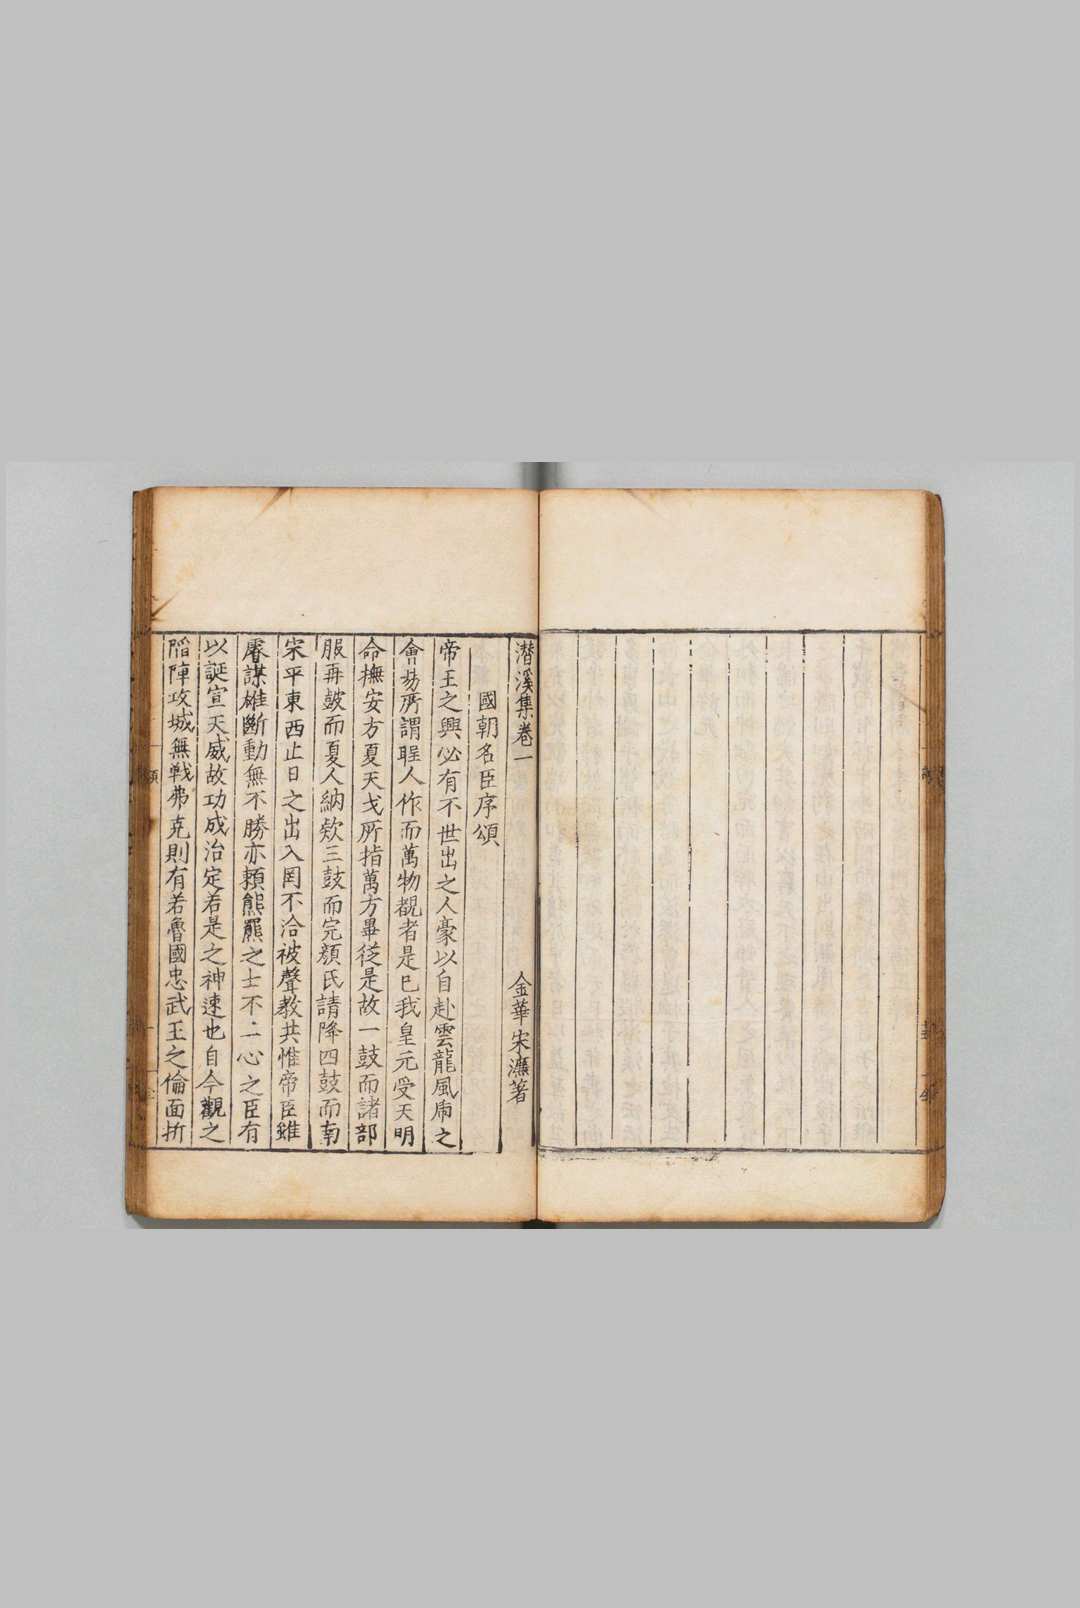 潜溪集卷一
金華宋濂著
國朝名臣序頌
帝王之興必有不世出之人豪以自赴雲龍風虎之
會易所謂聖人作而萬物覩者是已我皇元受天明
命撫安方夏天戈所指萬方畢從是故一鼓而諸部
服再鼓而夏人納欵三鼓而完顔氏請降四鼓而南
宋平東西止日之出入罔不洽被聲教共惟帝臣雖
睿謀雄斷動無不勝亦賴熊羆之士不二心之臣有
以誕宣天威故功成治定若是之神速也自今觀之
陷陣攻城無戰弗克則有若魯國忠武王之倫面折